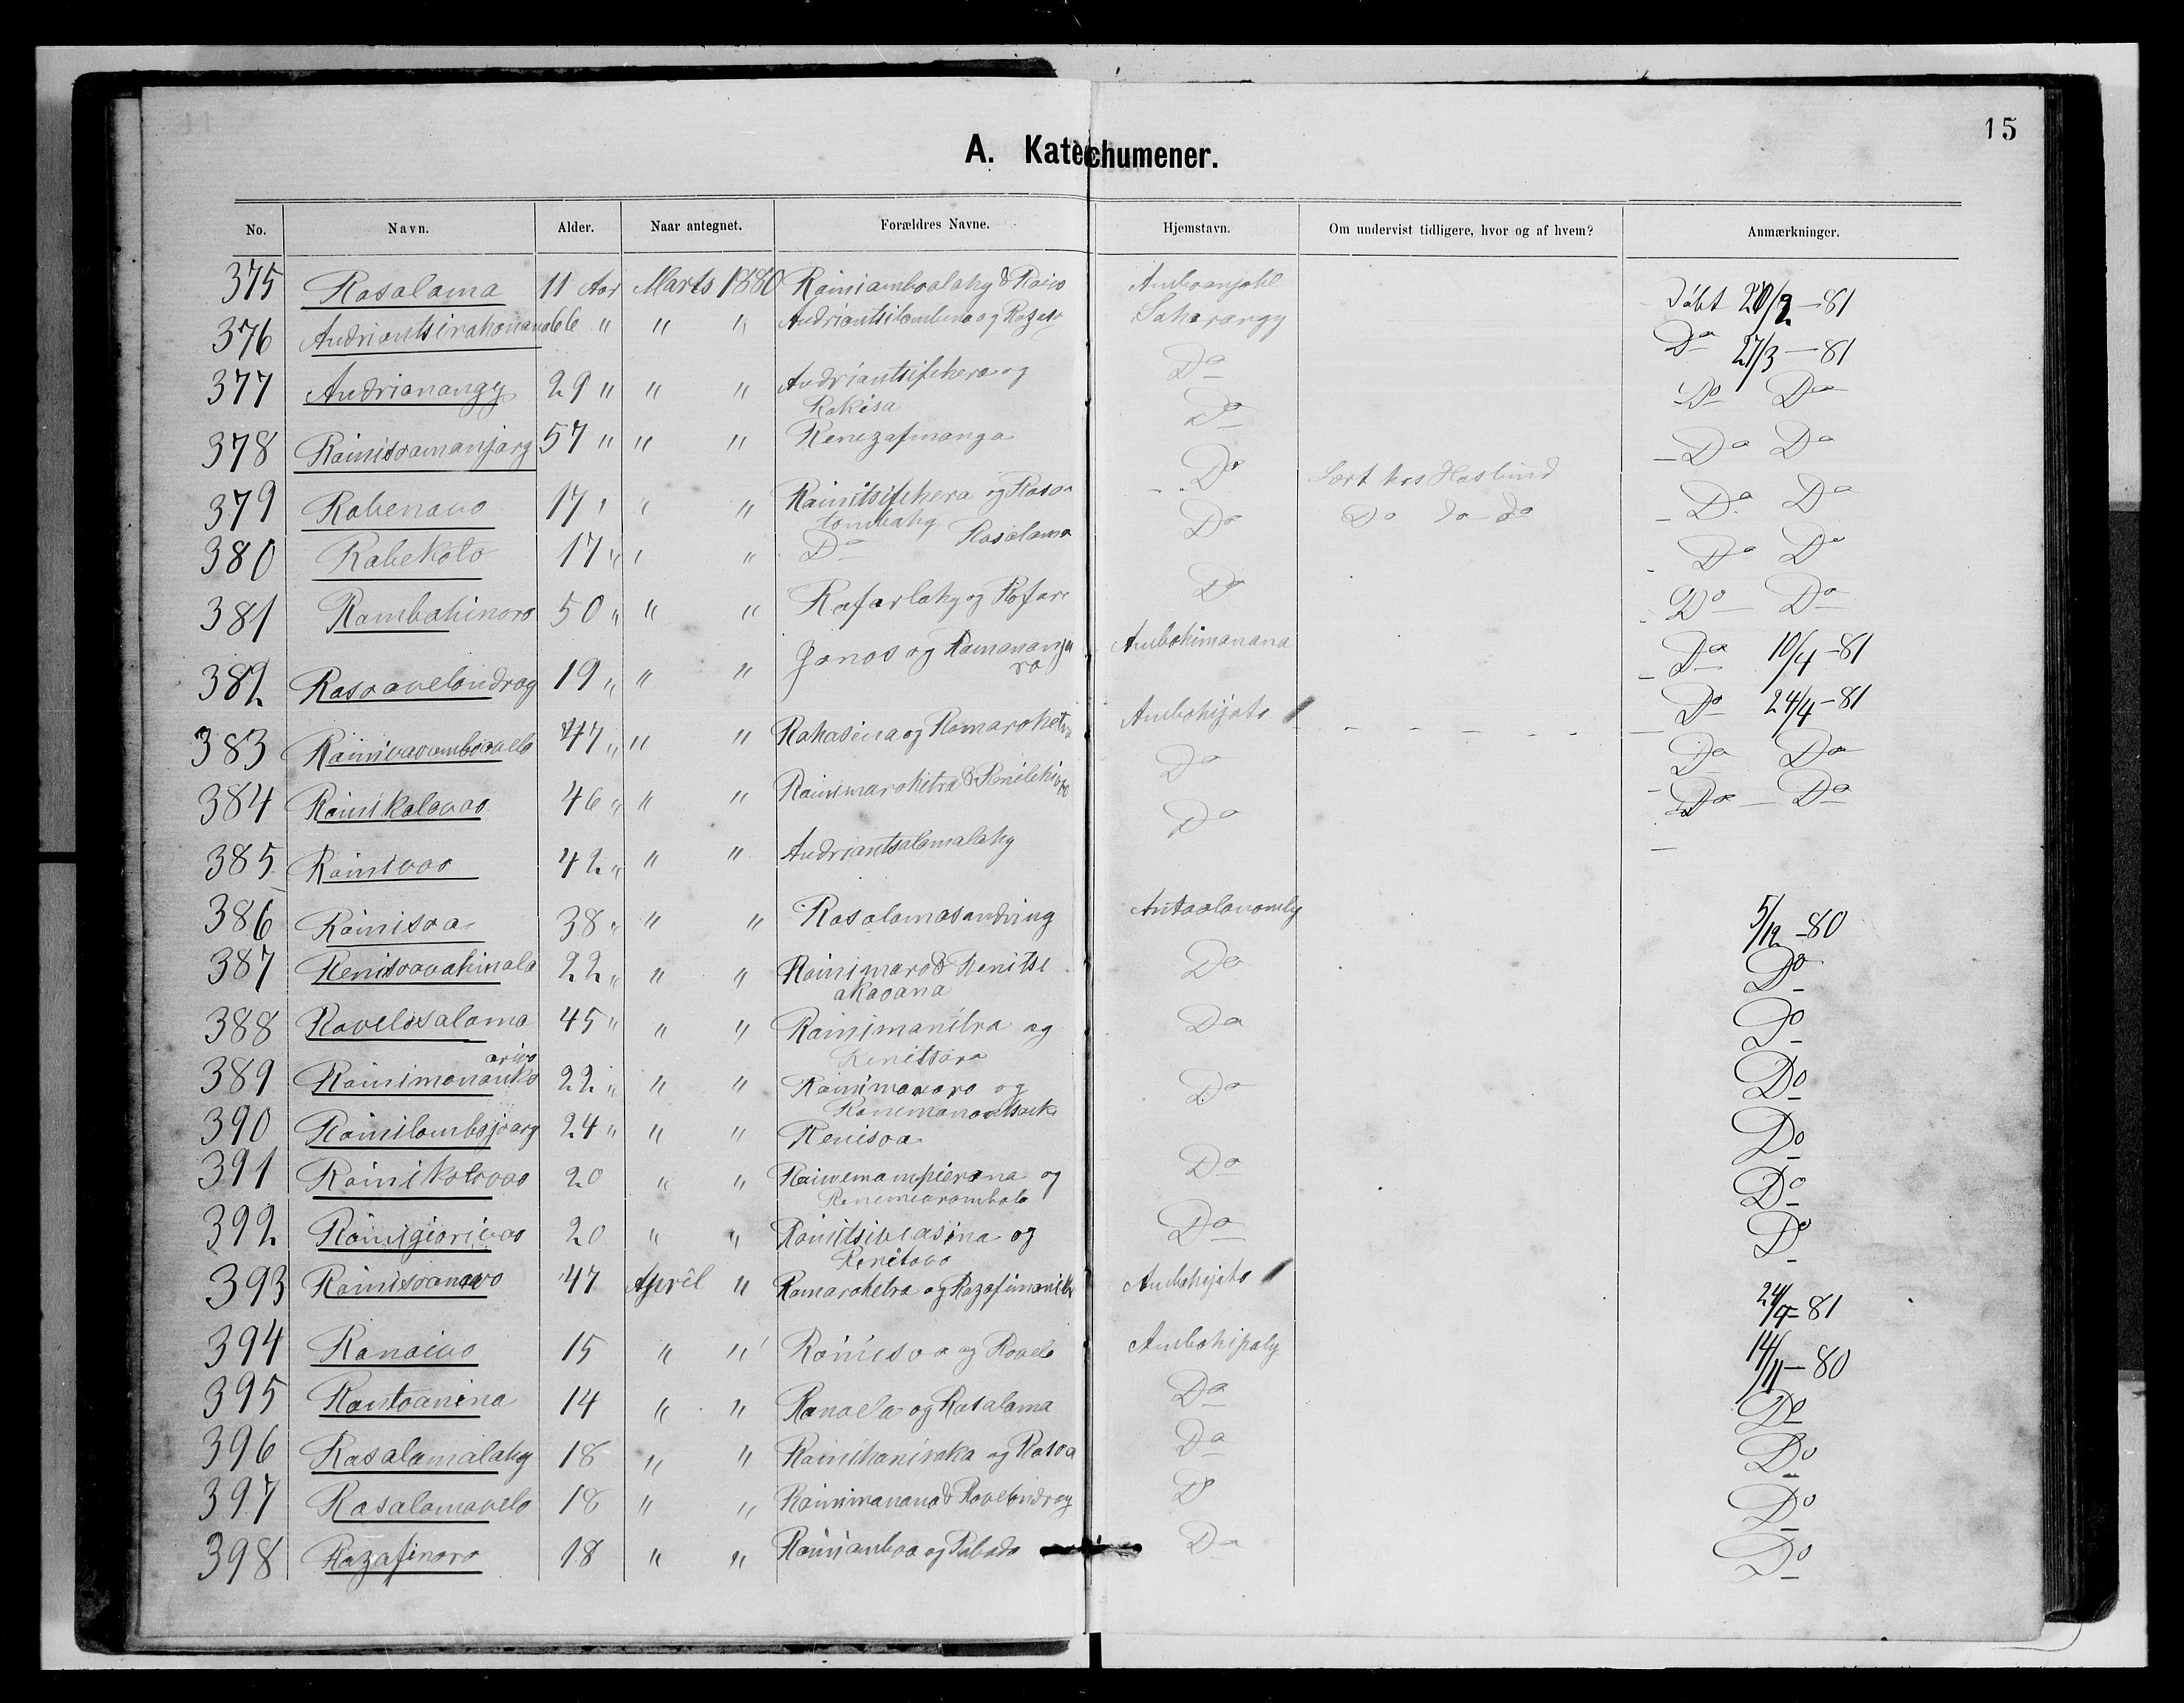 15
A. Katechumener.
No. Navn. Alder. Naar antegnet. Forældres Navne. Hjemstavn. Om undervist tidligere, hvor og af hvem? Anmærkninger.
375 Rasalama 11 Aar Marts 1880 Rainiamboalahy & Raivo Amboanjobe Døbt 20/2 - 81
376 Andriantsirahonana 66 " " " Andriantsilembena og Saharangy Do 27/3 - 81
377 Andrianangy 29 " " " Andriantsifehera og Do Do Do
Rakisa
378 Rainisoamanjary 57 " " " Renezafmanga Do Do Do
379 Rabenavo 17 " " " Rainitsifehera og Rasoa Do Lært hos Haslund Do Do
tombahy
380 Rabekoto 17 " " " Do Rasalama Do Do Do Do Do Do
381 Rambahinoro 50 " " " Rafaralahy og Do Do Do
382 Rasoavelondray 19 " " " Janos og Ramananja Ambohimanana Do 10/4 - 81
ra
383 Rainivaomboavelo 47 " " " Rahasina og Ramaroketra Ambohijato Do 24/4 - 81
384 Rainikalavao 46 " " " Rainimaroketra & Do Do Do
385 Rainivao 42 " " " Andriantsalamalahy Do Do Do
386 Rainisoa 38 " " " Rasalamasandriny Antaolanomby 5/12 - 80
387 Renisoavahinala 22 " " " Rainimaro & Renitse Do Do
akavana
388 Ravelosalama 45 " " " Rainimanitra og Do Do
Renitsara
arivo
389 Rainimananko 22 " " " Rainimanoro og Do Do
390 Rainilambojoary 24 " " " Renisoa Do
391 Rainikotovao 20 " " Rainemampierana og Do Do
Renemiarambola
392 Rainigiarivao 20 " " Rainitsiveasina og Do Do
Renitavo
393 Rainisoanavo 47 April " Ramaroketra og Razafimanitra Ambohijato 24/4 - 81
394 Ranaivo 15 " " Rainisoa og Ravelo Ambohipaly 14/11 - 80
395 Rantoanina 14 " " Ranoela og Rasalama Do Do
396 Rasalamalahy 18 " " Rainihaniraka og Rasoa Do Do
397 Rasalamavelo 18 " " Rainimanana & Ravelondray Do Do
398 Razafinoro 18 " " Rainiamboa og Rabodo Do Do